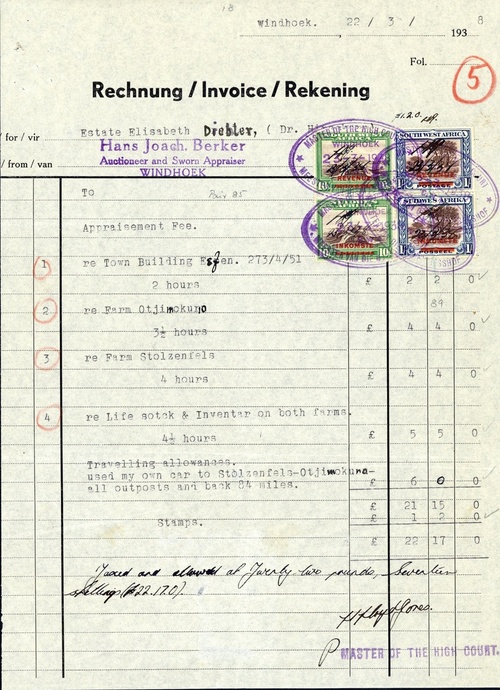 Windhoek. 22 / 3 / 193 8
Fol. 5
Rechnung / Invoice / Rekening
for / vir Estate Elisabeth Diehler, ( Dr.
from / van Hans Joach. Berker
Auctioneer and Sworn Appraiser
WINDHOEK
MASTER OF THE HIGH COURT
SOUTH WEST AFRICA
REVENUE
POSTAGE
SUIDWES AFRIKA
INKOMSTE
POSSEEL
To
Appraisement Fee.
1 re Town Building 273/4/51
2 hours £ 2 2 0
89
2 re Farm Otjimokuno
3½ hours £ 4 4 0
3 re Farm Stolzenfels
4 hours £ 4 4 0
4 re Life sotck & Inventar on both farms.
4½ hours £ 5 5 0
Travelling allowances.
used my own car to Stolzenfels-Otjimokuna-
all outposts and back 84 miles. £ 6 0
£ 21 15 0
Stamps. £ 1 2 0
£ 22 17 0
Taxed and allowed at Twenty two pounds, Seventeen
shillings (£22.17.0).
MASTER OF THE HIGH COURT.